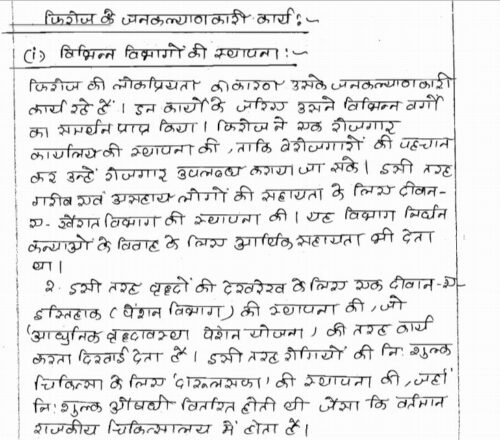 फिरोज के जनकल्याणकारी कार्य:-
(i) विभिन्न विभागों की स्थापना:-
फिरोज की लोकप्रियता का कारण उसके जनकल्याणकारी
कार्य रहे हैं। इन कार्यों के जरिए उसने विभिन्न वर्गों
का समर्थन प्राप्त किया। फिरोज ने एक रोजगार
कार्यालय की स्थापना की, ताकि बेरोजगारों की पहचान
कर उन्हें रोजगार उपलब्ध कराया जा सके। इसी तरह
गरीब एवं असहाय लोगों की सहायता के लिए दीवान-
ए-खैरात विभाग की स्थापना की। यह विभाग निर्धन
कन्याओं के विवाह के लिए आर्थिक सहायता भी देता
था।
2. इसी तरह वृद्दों की देखरेख के लिए एक दीवान-ए-
इस्तिहाक (पेंशन विभाग) की स्थापना की, जो
'आधुनिक वृद्दावस्था पेंशन योजना, की तरह कार्य
करता दिखाई देता है। इसी तरह रोगियों की नि:शुल्क
चिकित्सा के लिए 'दारुलसफा' की स्थापना की, जहां
नि:शुल्क औषधी वितरित होती थी जैसा कि वर्तमान
राजकीय चिकित्सालय में होता है।